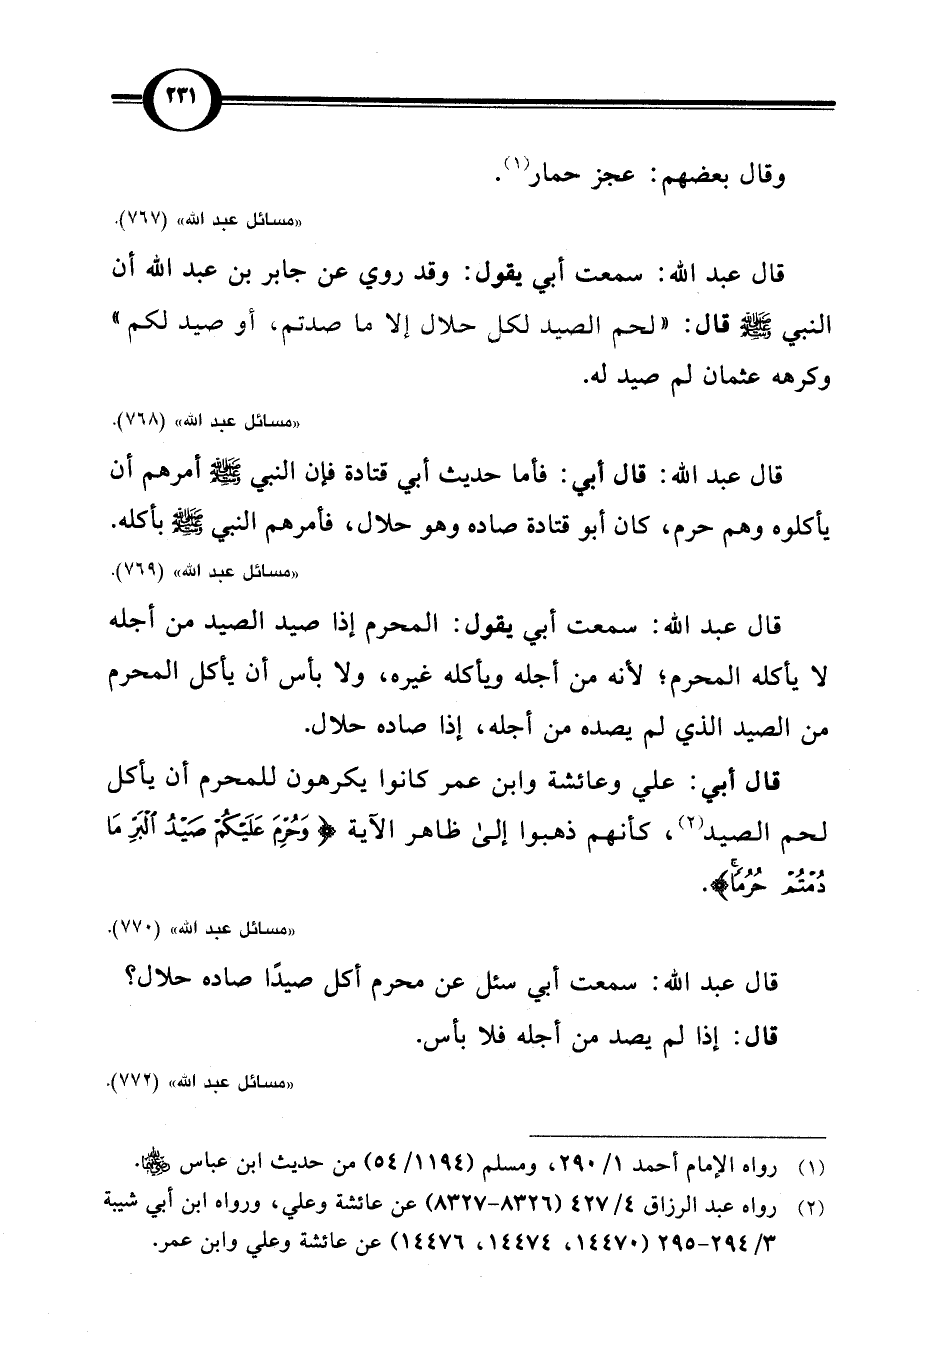 ٢٣١
وقال بعضهم: عجز حمار(١).
«مسائل عبد الله» (٧٦٧).
قال عبد الله: سمعت أبي يقول: وقد روي عن جابر بن عبد الله أن
النبي ﷺ قال: «لحم الصيد لكل حلال إلا ما صدتم، أو صيد لكم»
وكرهه عثمان لم صيد له.
«مسائل عبد الله» (٧٦٨).
قال عبد الله: قال أبي: فأما حديث أبي قتادة فإن النبي ﷺ أمرهم أن
يأكلوه وهم حرم، كان أبو قتادة صاده وهو حلال، فأمرهم النبي ﷺ بأكله.
«مسائل عبد الله» (٧٦٩).
قال عبد الله: سمعت أبي يقول: المحرم إذا صيد الصيد من أجله
لا يأكله المحرم؛ لأنه من أجله ويأكله غيره، ولا بأس أن يأكل المحرم
من الصيد الذي لم يصده من أجله، إذا صاده حلال.
قال أبي: علي وعائشة وابن عمر كانوا يكرهون للمحرم أن يأكل
لحم الصيد(٢)، كأنهم ذهبوا إلىٰ ظاهر الآية ﴿وَحُرِّمَ عَلَيْكُمْ صَيْدُ ٱلْبَرِّ مَا
دُمْتُمْ حُرُمًاۗ﴾.
«مسائل عبد الله» (٧٧٠).
قال عبد الله: سمعت أبي سئل عن محرم أكل صيدًا صاده حلال؟
قال: إذا لم يصد من أجله فلا بأس.
«مسائل عبد الله» (٧٧٢).
(١) رواه الإمام أحمد ١/ ٢٩٠، ومسلم (١١٩٤/ ٥٤) من حديث ابن عباس ﵄.
(٢) رواه عبد الرزاق ٤/ ٤٢٧ (٨٣٢٦-٨٣٢٧) عن عائشة وعلي، ورواه ابن أبي شيبة
٣/ ٢٩٤-٢٩٥ (١٤٤٧٠، ١٤٤٧٤، ١٤٤٧٦) عن عائشة وعلي وابن عمر.